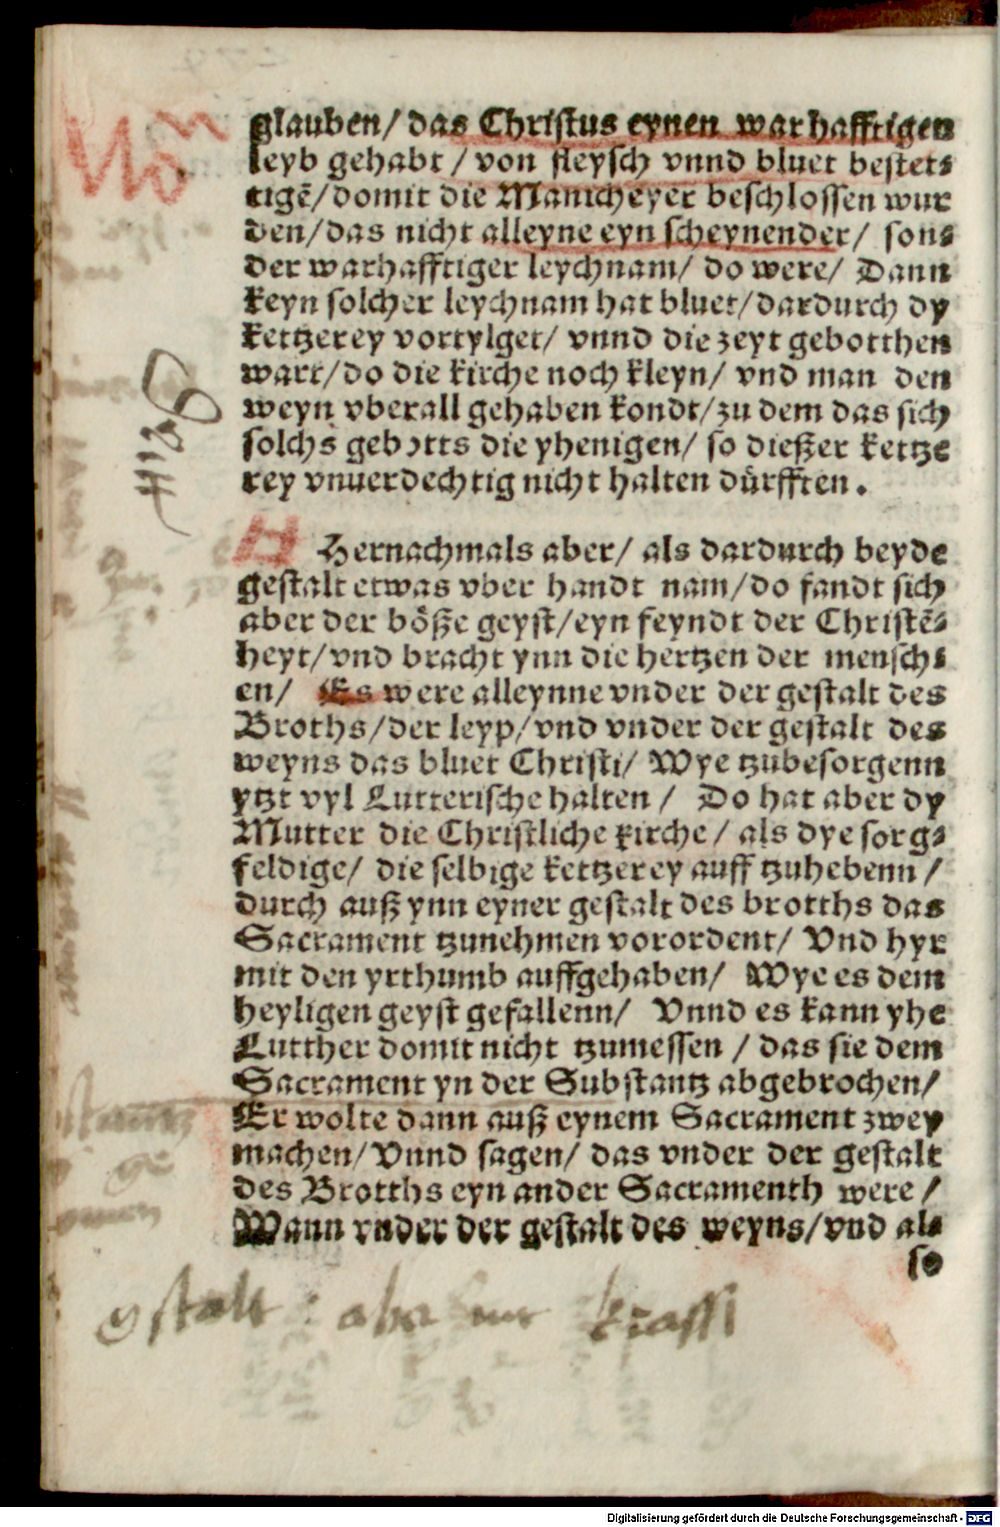 glauben/ das Christus eynen warhafftigen
leyb gehabt / von fleysch vnnd bluet bestet⸗
tigẽ/ domit die Manicheyer beschlossen wur
den/ das nicht alleyne eyn scheynender/ son⸗
der warhafftiger leychnam/ do were/ Dann
keyn solcher leychnam hat bluet/ dardurch dy
kettzerey vortylget/ vnnd die zeyt gebotthen
wart/ do die kirche noch kleyn/ vnd man den
weyn vberall gehaben kondt/ zu dem das sich
solchs gebotts die yhenigen/ so dießer kettze
rey vnuerdechtig nicht halten dürfften.
H Hernachmals aber/ als dardurch beyde
gestalt etwas vber handt nam/ do fandt sich
aber der böße geyst/ eyn feyndt der Christẽ⸗
heyt/ vnd bracht ynn die hertzen der mensch⸗
en/ Es were alleynne vnder der gestalt des
Broths/ der leyp/ vnd vnder der gestalt des
weyns das bluet Christi/ Wye tzubesorgenn
ytzt vyl Lutterische halten / Do hat aber dy
Mutter die Christliche kirche/ als dye sorg⸗
feldige/ die selbige kettzerey auff tzuhebenn /
durch auß ynn eyner gestalt des brotths das
Sacrament tzunehmen vorordent/ Vnd hyr
mit den yrthumb auffgehaben/ Wye es dem
heyligen geyst gefallenn/ Vnnd es kann yhe
Lutther domit nicht tzumessen / das sie dem
Sacrament yn der Substantz abgebrochen/
Er wolte dann auß eynem Sacrament zwey
machen/ Vnnd sagen/ das vnder der gestalt
des Brotths eyn ander Sacramenth were /
Wann vnder der gestalt des weyns/ vnd al⸗
so
gstalt : aber
Digitalisierung gefördert durch die Deutsche Forschungsgemeinschaft - DFG